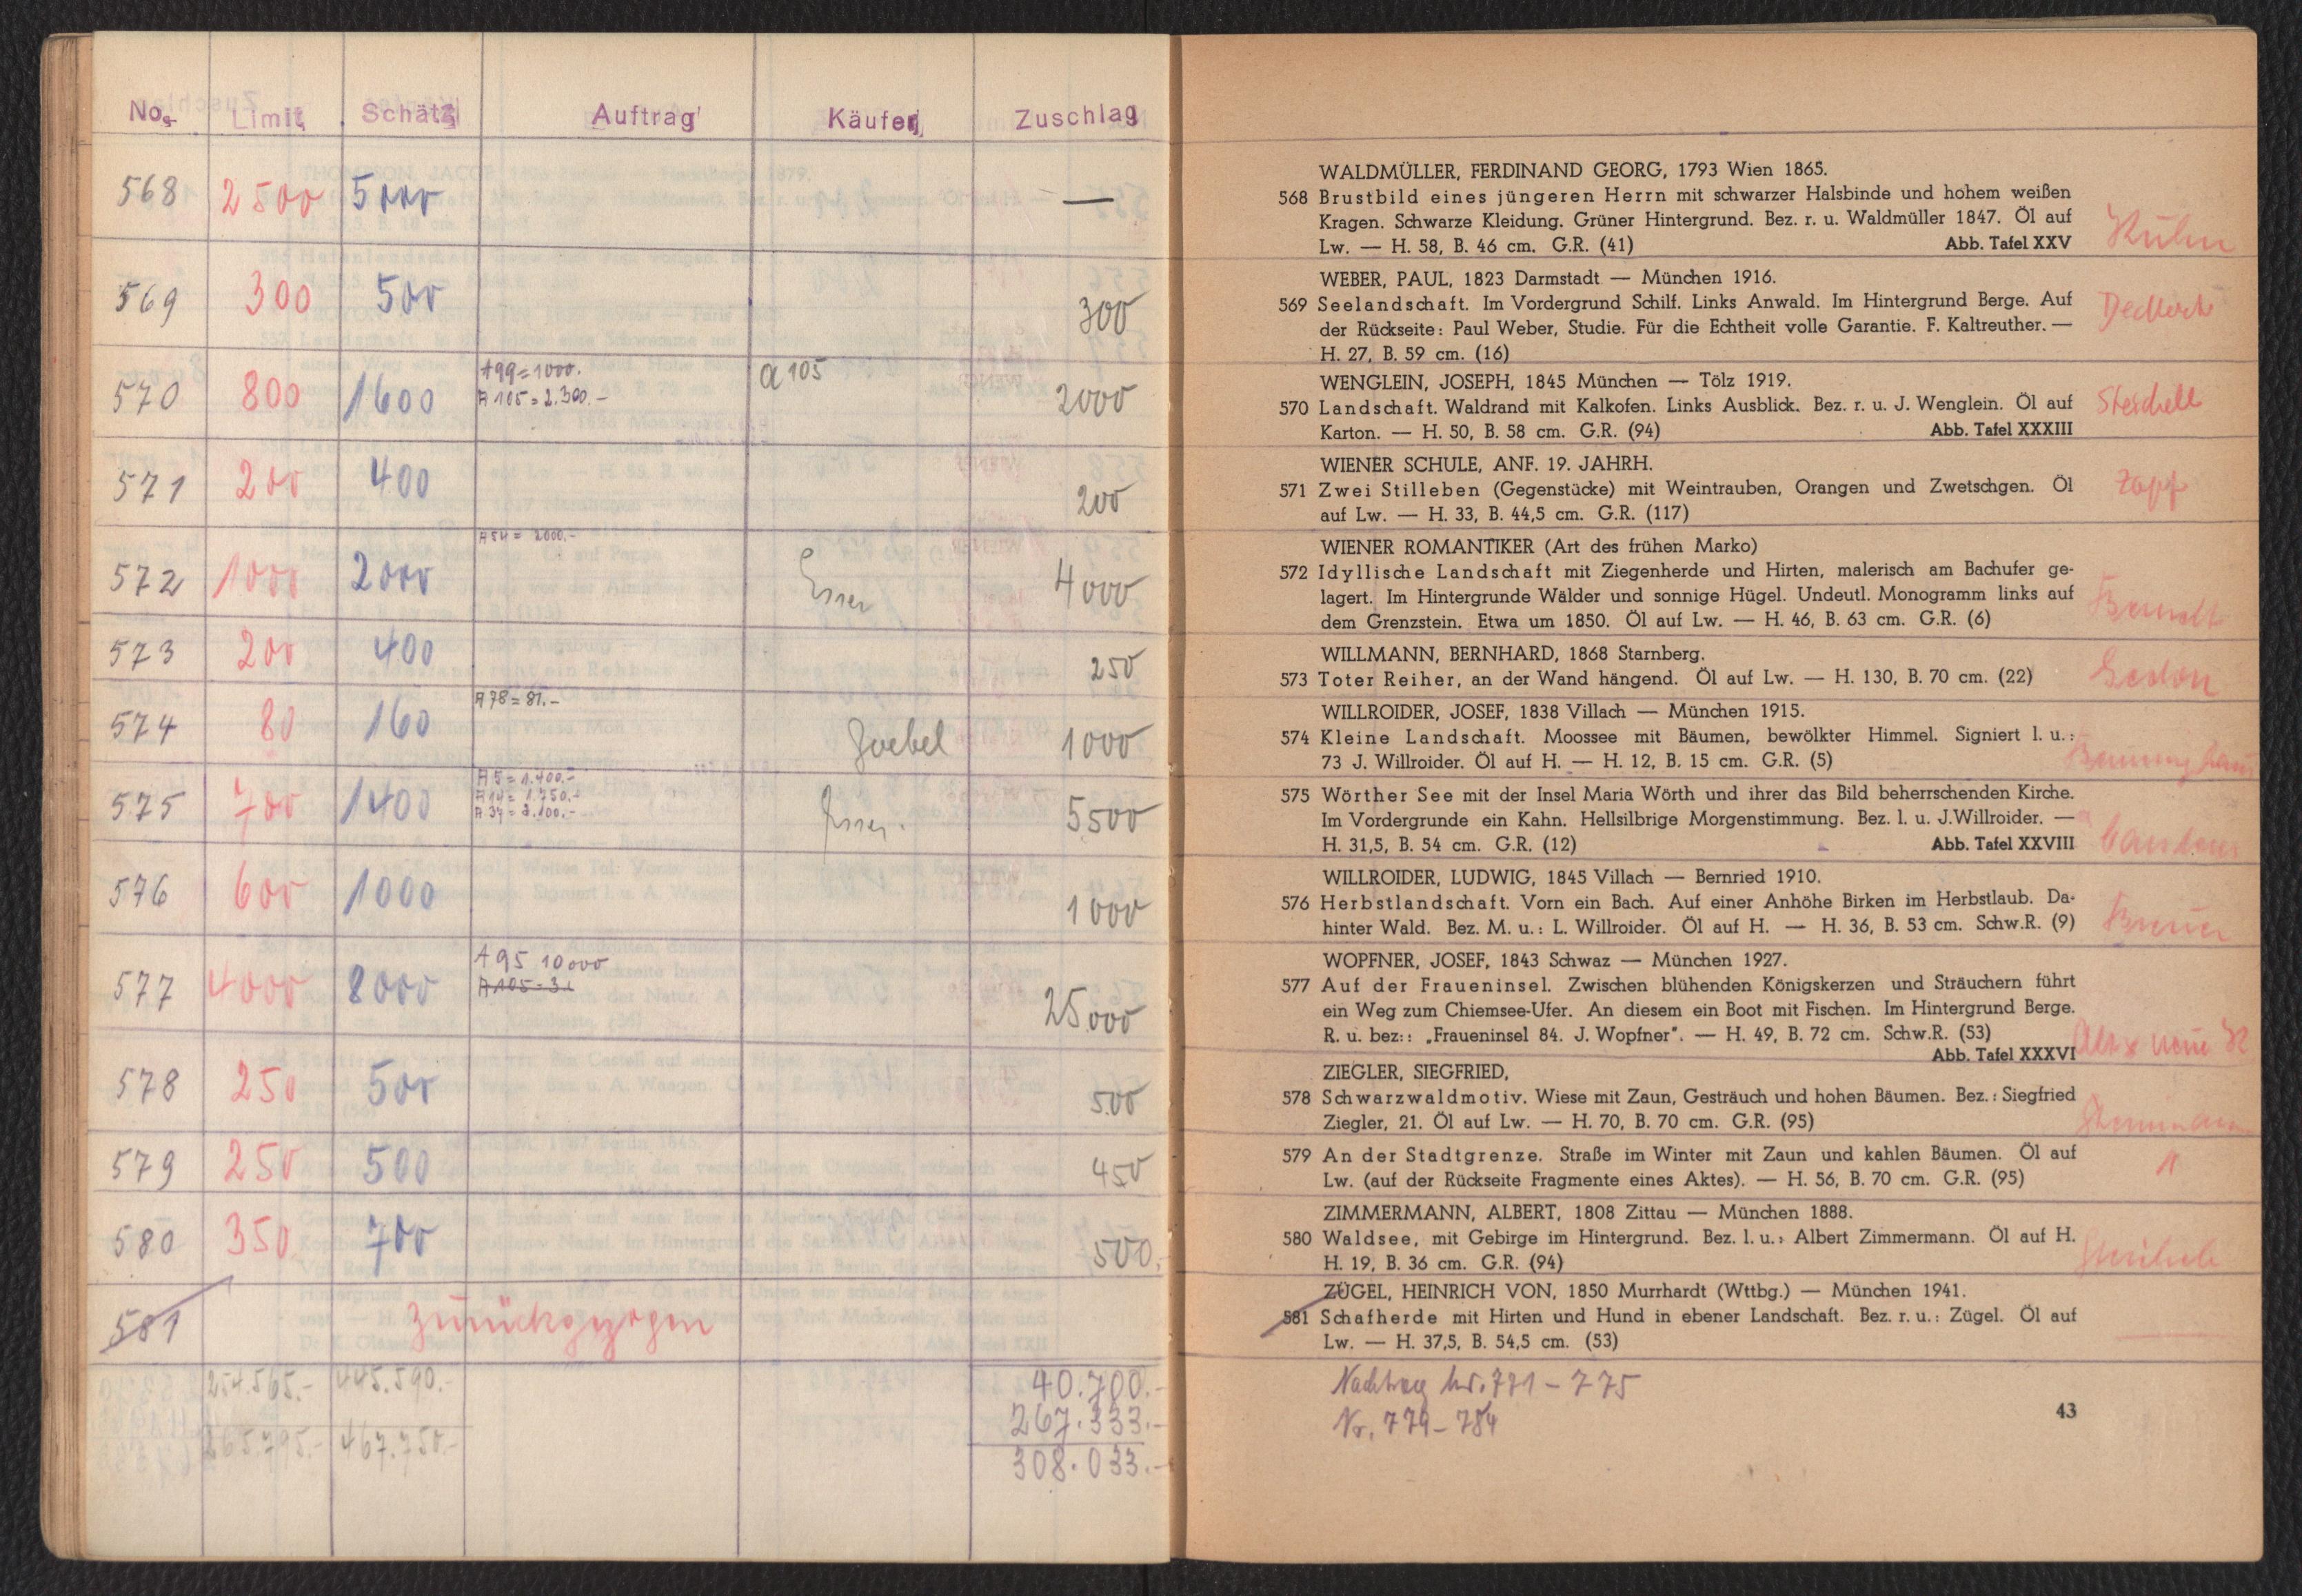 No. Limit Schätz Auftrag Käufer Zuschlag
568 2500 5000 —
569 300 500 300
570 800 1600 A99=1000. A105=2.300.- a 105 2000
571 200 400 200
572 1000 2000 A54= 2000.- Esser 4000
573 200 400 250
574 80 160 A78=81.- Goebel 1000
575 700 1400 A5=1.400.- A14= 1.750.- Esser. 5500
576 600 1000 1000
577 4000 8000 A95 10000 A105=3. 25.000
578 250 500 500
579 250 500 450
580 350 700 500.-
581 zurückgezogen
254.565.- 445.590.- 40.700.-
267.333.-
265.795.- 467.750.- 308.033.-
WALDMÜLLER, FERDINAND GEORG, 1793 Wien 1865.
568 Brustbild eines jüngeren Herrn mit schwarzer Halsbinde und hohem weißen
Kragen. Schwarze Kleidung. Grüner Hintergrund. Bez. r. u. Waldmüller 1847. Öl auf
Lw. — H. 58, B. 46 cm. G.R. (41) Abb. Tafel XXV Kuhn
WEBER, PAUL, 1823 Darmstadt — München 1916.
569 Seelandschaft. Im Vordergrund Schilf. Links Anwald. Im Hintergrund Berge. Auf
der Rückseite: Paul Weber, Studie. Für die Echtheit volle Garantie. F. Kaltreuther. —
H. 27, B. 59 cm. (16)
WENGLEIN, JOSEPH, 1845 München — Tölz 1919.
570 Landschaft. Waldrand mit Kalkofen. Links Ausblick. Bez. r. u. J. Wenglein. Öl auf
Karton. — H. 50, B. 58 cm. G.R. (94) Abb. Tafel XXXIII
WIENER SCHULE, ANF. 19. JAHRH.
571 Zwei Stilleben (Gegenstücke) mit Weintrauben, Orangen und Zwetschgen. Öl Zapf
auf Lw. — H. 33, B. 44,5 cm. G.R. (117)
WIENER ROMANTIKER (Art des frühen Marko)
572 Idyllische Landschaft mit Ziegenherde und Hirten, malerisch am Bachufer ge-
lagert. Im Hintergrunde Wälder und sonnige Hügel. Undeutl. Monogramm links auf
dem Grenzstein. Etwa um 1850. Öl auf Lw. — H. 46, B. 63 cm. G.R. (6)
WILLMANN, BERNHARD, 1868 Starnberg.
573 Toter Reiher, an der Wand hängend. Öl auf Lw. — H. 130, B. 70 cm. (22) Gedon
WILLROIDER, JOSEF, 1838 Villach — München 1915.
574 Kleine Landschaft. Moossee mit Bäumen, bewölkter Himmel. Signiert l. u.:
73 J. Willroider. Öl auf H. — H. 12, B. 15 cm. G.R. (5)
575 Wörther See mit der Insel Maria Wörth und ihrer das Bild beherrschenden Kirche.
Im Vordergrunde ein Kahn. Hellsilbrige Morgenstimmung. Bez. l. u. J.Willroider. —
H. 31,5, B. 54 cm. G.R. (12) Abb. Tafel XXVIII
WILLROIDER, LUDWIG, 1845 Villach — Bernried 1910.
576 Herbstlandschaft. Vorn ein Bach. Auf einer Anhöhe Birken im Herbstlaub. Da-
hinter Wald. Bez. M. u.: L. Willroider. Öl auf H. — H. 36, B. 53 cm. Schw.R. (9)
WOPFNER, JOSEF, 1843 Schwaz — München 1927.
577 Auf der Fraueninsel. Zwischen blühenden Königskerzen und Sträuchern führt
ein Weg zum Chiemsee-Ufer. An diesem ein Boot mit Fischen. Im Hintergrund Berge.
R. u. bez:: „Fraueninsel 84. J. Wopfner". — H. 49, B. 72 cm. Schw.R. (53)
Abb. Tafel XXXVI
ZIEGLER, SIEGFRIED,
578 Schwarzwaldmotiv. Wiese mit Zaun, Gesträuch und hohen Bäumen. Bez.: Siegfried
Ziegler, 21. Öl auf Lw. — H. 70, B. 70 cm. G.R. (95)
579 An der Stadtgrenze. Straße im Winter mit Zaun und kahlen Bäumen. Öl auf "
Lw. (auf der Rückseite Fragmente eines Aktes). — H. 56, B. 70 cm. G.R. (95)
ZIMMERMANN, ALBERT, 1808 Zittau — München 1888.
580 Waldsee, mit Gebirge im Hintergrund. Bez. l. u.: Albert Zimmermann. Öl auf H.
H. 19, B. 36 cm. G.R. (94)
ZÜGEL, HEINRICH VON, 1850 Murrhardt (Wttbg.) — München 1941.
581 Schafherde mit Hirten und Hund in ebener Landschaft. Bez. r. u.: Zügel. Öl auf
Lw. — H. 37,5, B. 54,5 cm. (53)
Nachtrag Nr. 771 - 775
Nr. 779 - 784
43